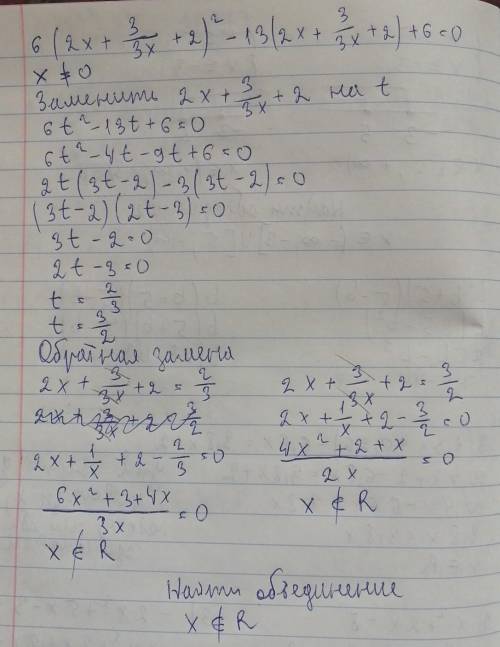 6(2x + 3/3x + 2)² - 13(2x + 3/3x + 2) + 6 = 0
x ≠ 0
Заменить 2x + 3/3x + 2 на t
6t² - 13t + 6 = 0
6t² - 4t - 9t + 6 = 0
2t(3t - 2) - 3(3t - 2) = 0
(3t - 2)(2t - 3) = 0
3t - 2 = 0
2t - 3 = 0
t = 2/3
t = 3/2
Обратная замена
2x + 3/3x + 2 = 2/3
2x + 3/3x + 2 = 3/2
2x + 1/x + 2 - 2/3 = 0
6x² + 3 + 4x / 3x = 0
x ∉ R
2x + 3/3x + 2 = 3/2
2x + 1/x + 2 - 3/2 = 0
4x² + 2 + x / 2x = 0
x ∉ R
Найти объединение
x ∉ R